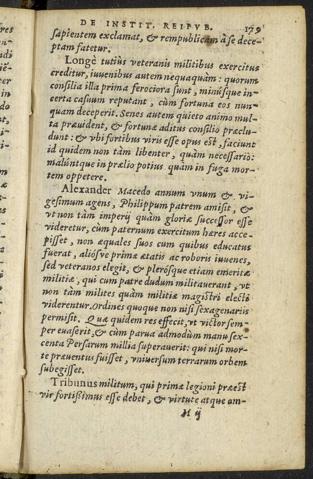 DE INSTIT. REIPVB. 179
sapientem exclamat, & rempublicam à se dece-
ptam fatetur.
Longè tutiùs veteranis militibus exercitus
creditur, iuuenibus autem nequaquàm: quorum
consilia illa prima ferociora sunt, minúsque in-
certa casuum reputant, cùm fortuna eos nun-
quam deceperit. Senes autem quieto animo mul-
ta præuident, & fortunæ aditus consilio præclu-
dunt: & vbi fortibus viris esse opus est, faciunt
id quidem non tàm libenter, quàm necessariò:
malúntque in prælio potius quàm in fuga mor-
tem oppetere.
Alexander Macedo annum vnum & vi-
gesimum agens, Philippum patrem amisit, &
vt non tàm imperij quàm gloriæ successor esse
videretur, cùm paternum exercitum hæres acce-
pisset, non æquales suos cum quibus educatus
fuerat, aliósve primæ ætatis ac roboris iuuenes,
sed veteranos elegit, & plerósque etiam emeritæ
militiæ, qui cum patre dudum militauerant, vt
non tàm milites quàm militiæ magistri electi
viderentur. Ordines quoque non nisi sexagenariis
permisit. Quæ quidem res effecit, vt victor sem-
per euaserit, & cùm parua admodùm manu sex-
centa Persarum millia superauerit: qui nisi mor-
te præuentus fuisset, vniuersum terrarum orbem
subegisset.
Tribunus militum, qui primæ legioni præest
vir fortissimus esse debet, & virtute atque om-
M ij